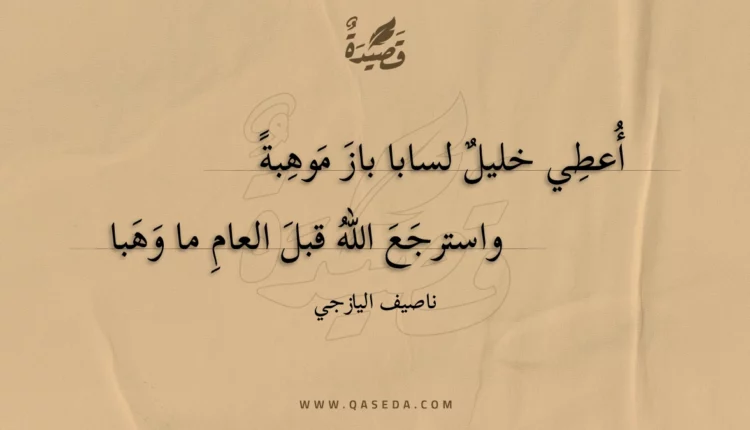 قَصِيْدَةٌ
أُعطِي خليلٌ لسابا بازَ مَوهِبةً
واسترجَعَ اللهُ قبلَ العامِ ما وَهَبا
ناصيف اليازجي
WWW.QASEDA.COM